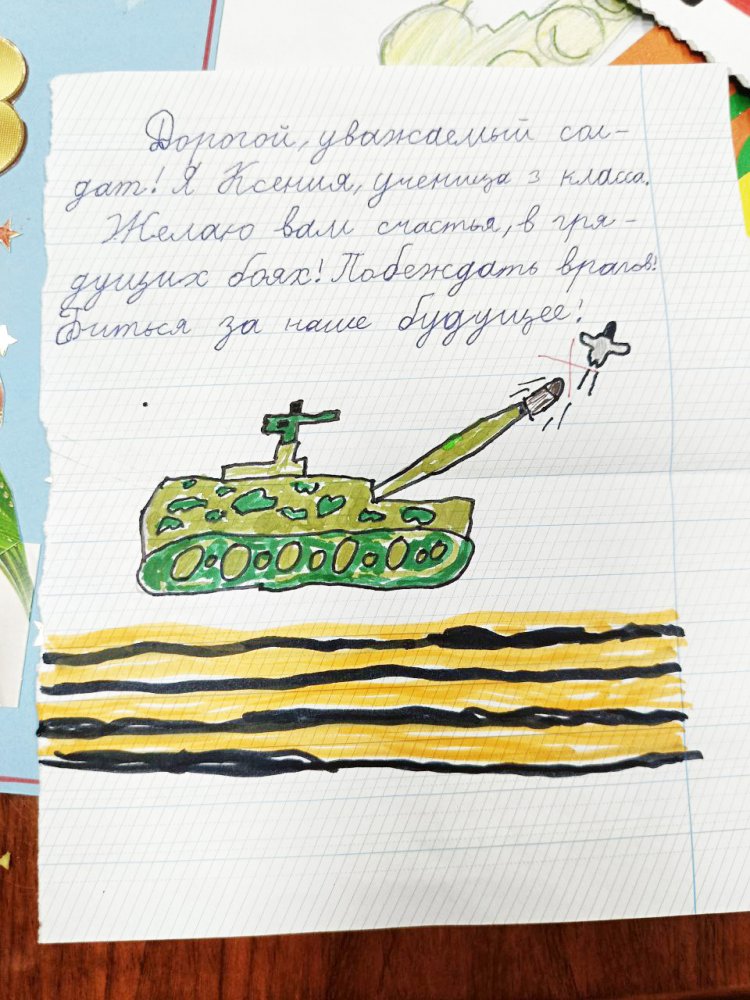 Дорогой, уважаемый сол-
дат! Я Ксения, ученица 3 класса.
Желаю вам счастья, в гря-
дущих боях! Побеждать врагов!
Биться за наше будущее!